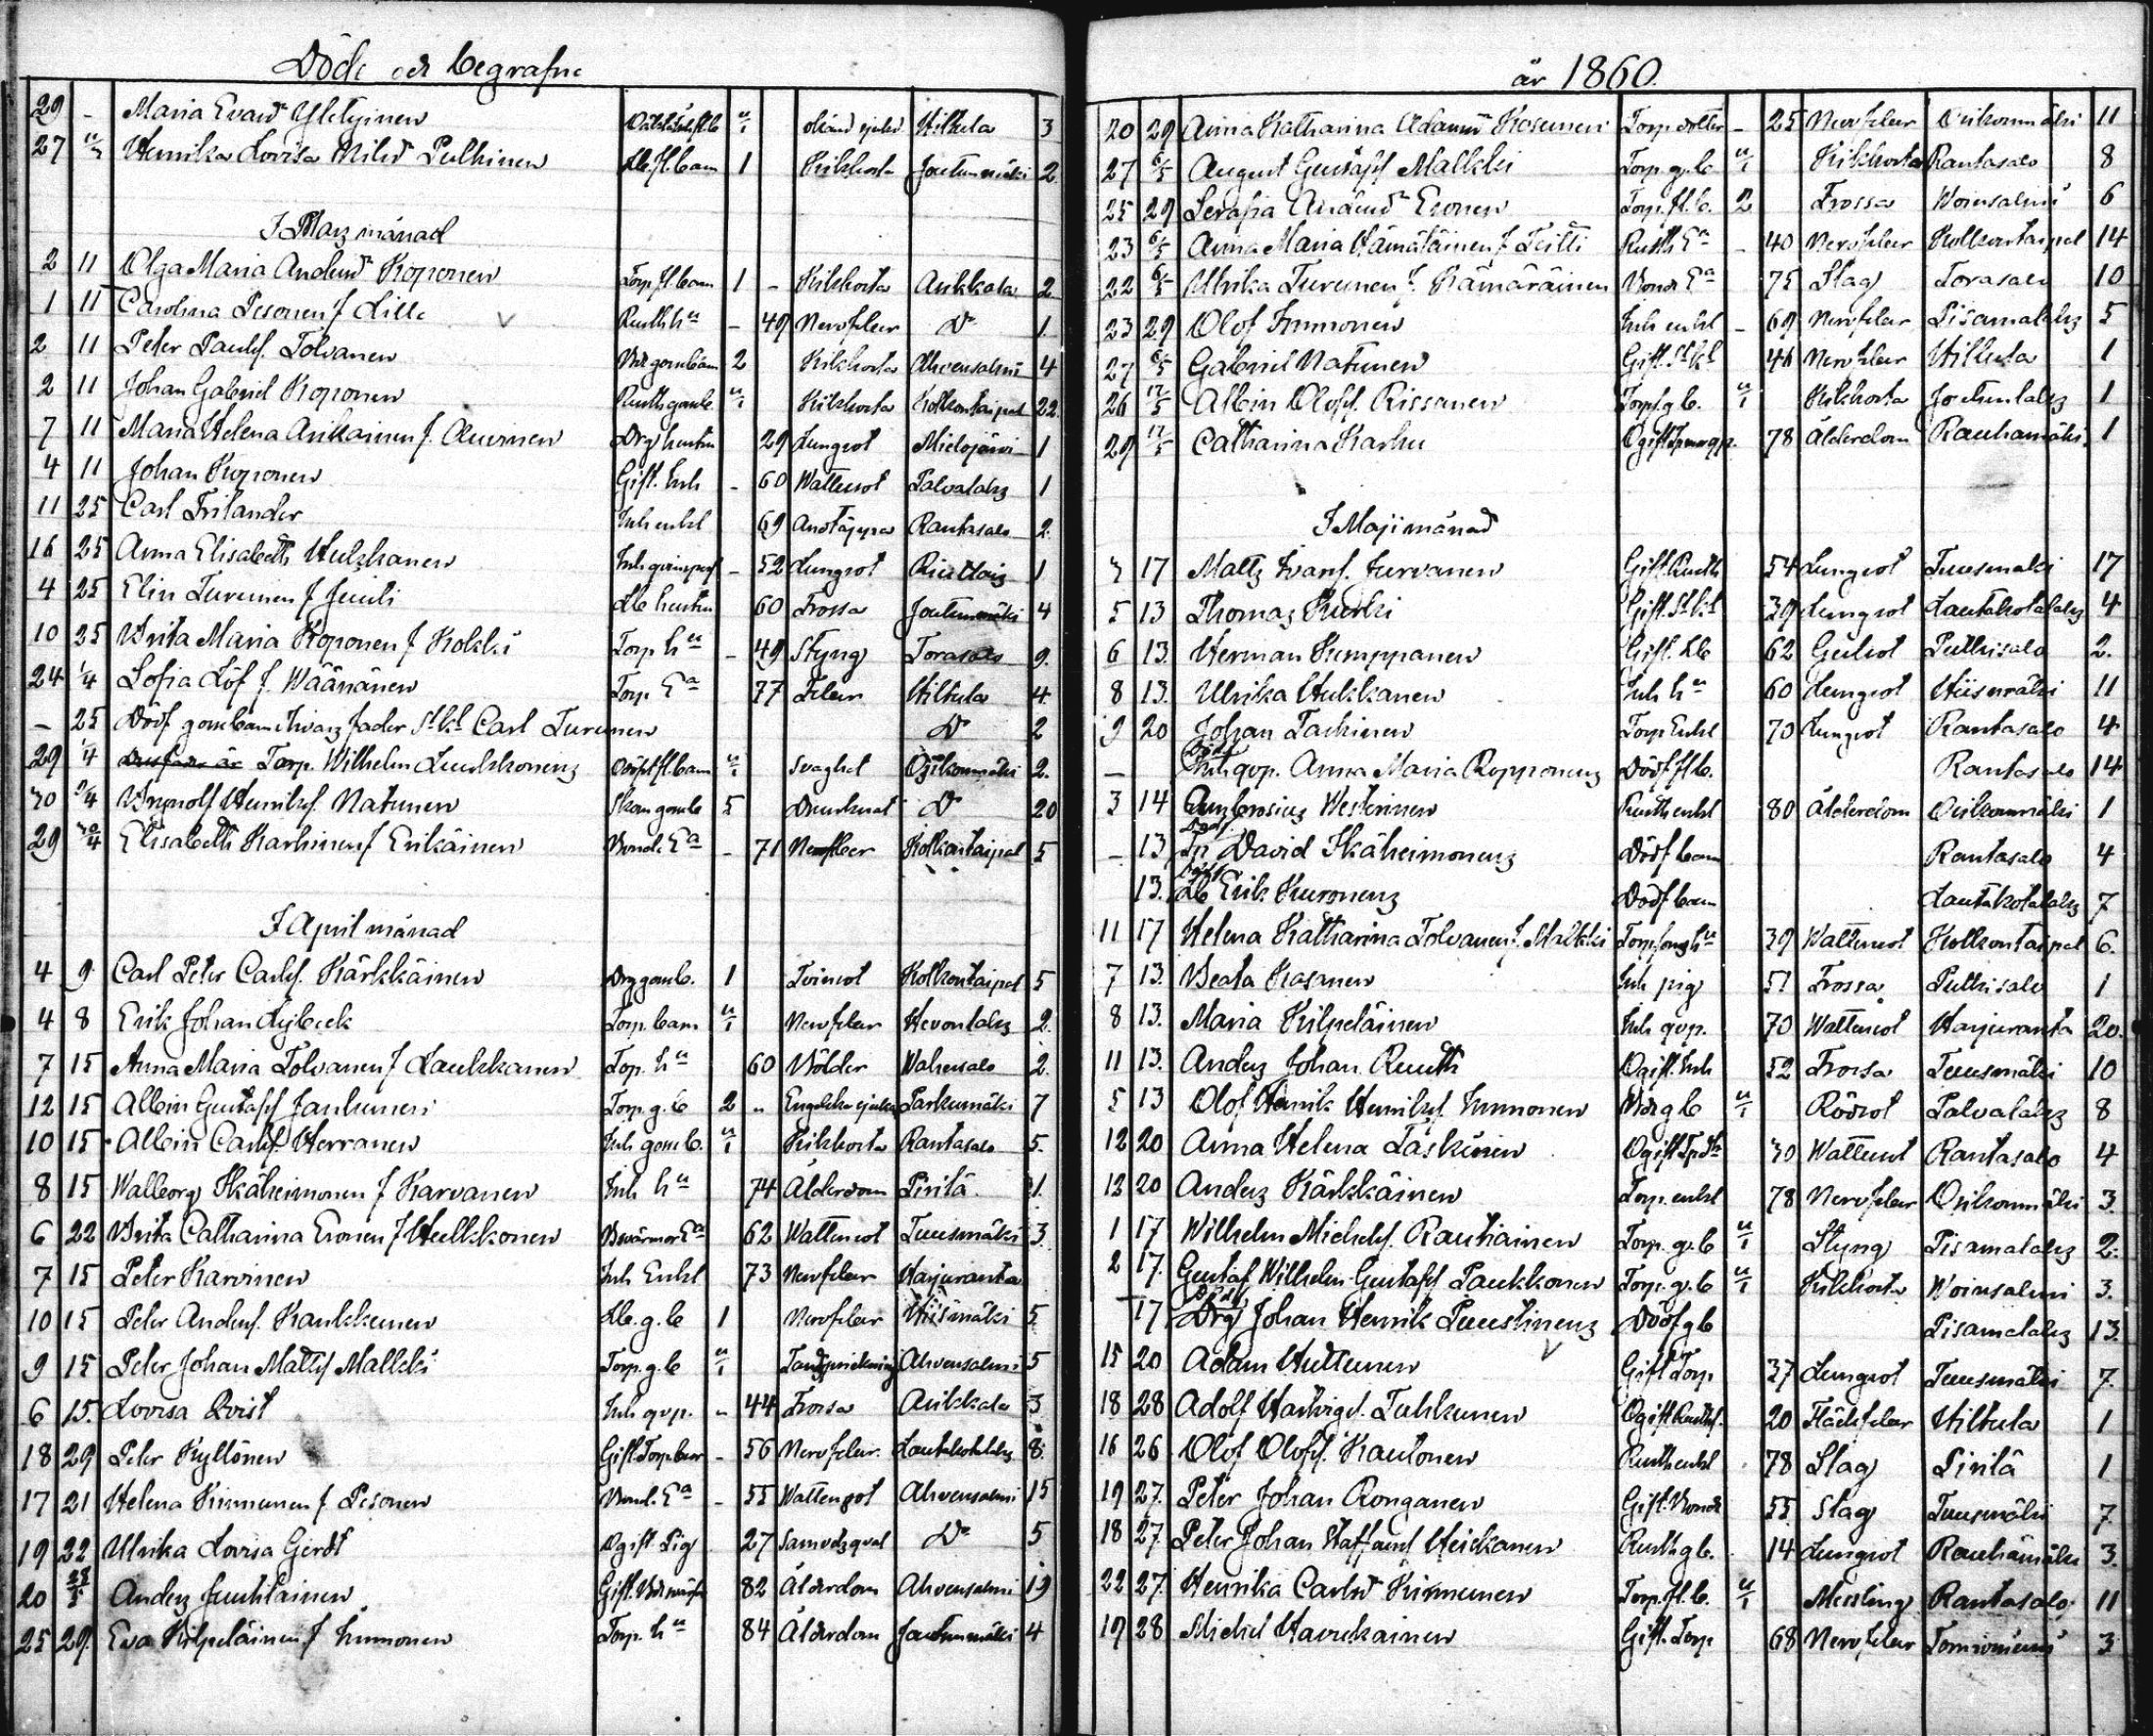 Döde och begrafne
29 - Maria Evasdr Yletyinen u/1 okänd sjukd Hilkula 3
27 Henrika Lovisa Nilsd Pulkinen Lb. fl. barn 1 Kikhosta Joutenmäki 2
I Marz månad
2 11 Olga Maria Andersdr Koponen Torp fl. barn 1 - Kikhosta Ankkala 2
1 11 Carolina Pesonen f Lille Ruth hu - 49 Nervfeber Do 1
2 11 Peter Paulss. Tolvanen gossebarn 2 Kikhosta Ahvensalmi 4
2 11 Johan Gabriel Koponen Ruth gosseb u/1 Kikhosta Kolkontaipal 22
7 11 Maria Helena Asikainen f. Auvinen Drg hustru 29 Lungsot Mielojärvi 1
4 11 Johan Koponen Gift. Inh - 60 Wattusot Palvalaks 1
11 25 Carl Frilander Inh enkl 69 Andtäppa Rantasalo 2
16 25 Anna Elisabeth Hulzkanen Inh qvinsperson - 52 Lungsot 1
4 25 Elin Turunen f Juuti Lb hustru 60 Frossa Joutenmäki 4
10 25 Brita Maria Koponen f Kokki Torp hu - 49 Styng Torasalo 9
24 1/4 Sofia Löf f. Wäänänen Torp. Ea 77 Feber Hilkula 4
- 25 Dödf gossebarn hvars fader St.kl Carl Turunen Do 2
29 1/4 Torp. Wilhelm Luukkonens Dödf fl. barn u/1 Svaghet Osikonmäki 2
30 9/4 Brynolf Henrikss. Natunen Skom gosseb 5 Drunknat Do 20
29 30/4 Elisabeth Karhinen f Erikäinen Bond. Ea - 71 Nervfeber Kolkontaipal 5
I April månad
4 9 Carl Peter Carlss. Kärkkäinen Drg gosseb. 1 Tvinsot Kolkontaipal 5
4 8 Erik Johan Nybeck Torp. barn u/1 Nervfeber Hevonlaks 2
7 15 Anna Maria Tolvanen f Laukkanen Torp. hu 60 Bölder Wahersalo 2
12 15 Albin Gustafss Janhunen Torp. g. b 2 " Engelska sjukan Parkumäki 7
10 15 Albin Carlss. Herranen Inh gosseb. u/1 Kikhosta Rantasalo 5
8 15 Walborg Ikäheimonen f Karvanen Inh hu 74 Ålderdom Piritä 1
6 22 Brita Catharina Eronen f Heikkonen Svärmor Ea 62 Wattusot Tuusmäki 3
7 15 Peter Karvinen Inh Enkl 73 Nervfeber Harjuranta
10 15 Peter Anderss. Kaukkunen Lb. g. b 1 Nervfeber Hiismäki 5
9 15 Peter Johan Mattss Malkki Torp. g. b u/1 Tandsprickning Ahvensalmi 5
6 15. Lovisa Qvist Inh qvp. - 44 Frossa Ankkala 3
18 29 Peter Kyllönen Gift. Torpare - 56 Nervfeber Lautakotalaks 8
17 21 Helena Kinnunen f Pesonen Bond. Ea - 55 Wattusot Ahvensalmi 15
19 22 Ulrika Lovisa Gerdt Ogift. Pig 27 Samvetsqval Do 5
20 Anders Juutilainen Gift. 82 Ålderdom Ahvensalmi 19
25 29. Eva Kilpeläinen f Immonen Torp. hu 84 Ålderdom Joutenmäki 4
år 1860.
20 29 Anna Katharina Adamsdr Kosunen Torp dotter - 25 Nervfeber Osikonmäki 11
27 6/5 August Gustafss Malkki Torp. g. b u/1 Kikhosta Rantasalo 8
25 29 Serafia Andersdr Eronen Torp. fl. b. 2 Frossa Woinsalmi 6
23 6/5 Anna Maria Hämäläinen f Teitti Ruth Ea - 40 Nervfeber Kolkontaipal 14
22 6/5 Ulrika Turunen f. Kämäräinen Bonde Ea 75 Slag Torasalo 10
23 29 Olof Immonen Inh enkl - 69 Nervfeber Pisamalaks 5
27 6/5 Gabriel Natunen Gift. St kl 46 Nervfeber Hilkula 1
26 17/5 Albin Olofss. Rissanen Torp. g b. u/1 Kikhosta Joutenlaks 1
29 17/5 Catharina Karhu Ogift 78 Ålderdom Rauhamäki 1
I Maji månad
3 17 Matts Ivarss. Turvanen Gift. Ruth 54 Lungsot Tuusmäki 17
5 13 Thomas Kurki Gift. St kl 39 Lungsot Lautakotalaks 4
6 13. Herman Kumppanen Gift. Lb 62 Gulsot Putkisalo 2.
8 13. Ulrika Hukkanen Inh hu 60 Lungsot Hiismäki 11
9 20 Johan Laukinen Torp Enkl 70 Lungsot Rantasalo 4
- Inh qvp. Anna Maria Ropponens Dödf fl b. Rantasalo 14
3 14 Ambrosius Westerinen Ruth enkl 80 Ålderdom Osikonmäki 1
- 13 David Ikäheimonens Dödf barn Rantasalo 4
13. Lb Erik Kuronens Dödf barn Lautakotalaks 7
11 17 Helena Katharina Tolvanen f. Malkki 39 Wattusot Kolkontaipal 6.
7 13. Beata Kasanen Inh pig 51 Frossa Putkisalo 1
8 13. Maria Kilpeläinen Inh qvp. 70 Wattusot Harjuranta 20.
11 13. Anders Johan Ruuth Ogift. Inh 52 Frossa Tuusmäki 10
5 13 Olof Henrik Henrikss. Immonen g b u/1 Rödsot Palvalaks 8
12 20 Anna Helena Laskinen Ogift 30 Wattusot Rantasalo 4
12 20 Anders Kärkkäinen Torp. enkl 78 Nervfeber Osikonmäki 3.
1 17 Wilhelm Michelss. Rautiainen Torp. g. b u/1 Styng Pisamalaks 2.
2 17. Gustaf Wilhelm Gustafss Paukkonen Torp. g. b u/1 Kikhosta Woinsalmi 3.
- 17 Drg Johan Henrik Puustinens Dödf g b Pisamalaks 13.
15 20 Adam Huttunen Gift Torp 37 Lungsot Tuusmäki 7.
18 28 Adolf Hartvigss. Tuhkunen Ogift 20 Fläckfeber Hilkula 1
16 26 Olof Olofss. Kautonen Ruth enkl 78 Slag Piritä 1
19 27. Peter Johan Ronganen Gift. Bonde 55 Slag Tuusmäki 7
18 27. Peter Johan Staffanss Heiskanen Ruth g b. 14 Lungsot Rauhamäki 3.
22 27. Henrika Carlsdr Kinnunen Torp. fl. b. u/1 Messling Rantasalo 11
19 28 Michel Haverkainen Gift. Torp 68 Nervfeber Tornioniemi 3